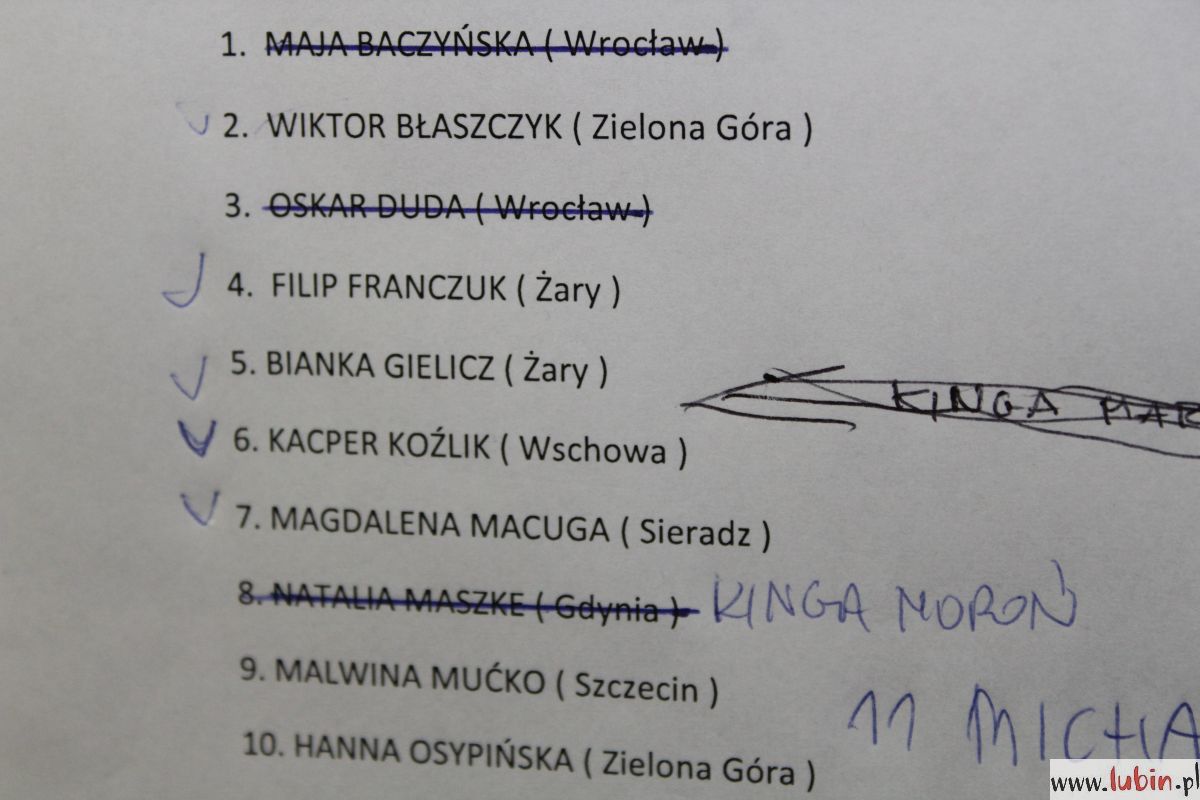 1. MAJA BACZYŃSKA ( Wrocław )
2. WIKTOR BŁASZCZYK ( Zielona Góra )
3. OSKAR DUDA ( Wrocław )
4. FILIP FRANCZUK ( Żary )
5. BIANKA GIELICZ ( Żary )
KINGA MAR
6. KACPER KOŹLIK ( Wschowa )
7. MAGDALENA MACUGA ( Sieradz )
8. NATALIA MASZKE ( Gdynia ) KINGA MOROŃ
9. MALWINA MUĆKO ( Szczecin )
11 MICHA
10. HANNA OSYPIŃSKA ( Zielona Góra )
www.lubin.pl